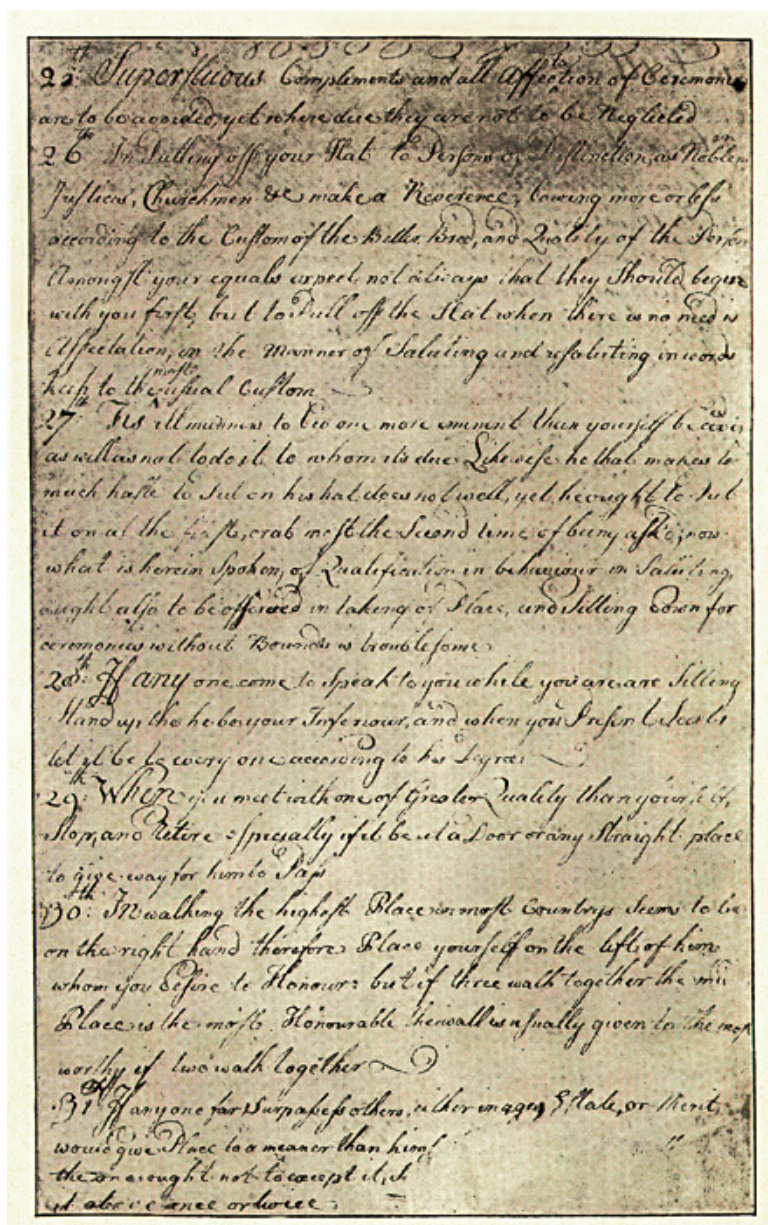 25th Superfluous Complements and all Affectation of Ceremonie
are to be avoided, yet where due they are not to be Neglected
26th In Pulling off your Hat to Persons of Distinction, as Noblemen
Justices, Churchmen &c make a Reverence, bowing more or less
according to the Custom of the Better Bred, and Quality of the Person
Amongst your equals expect not always that they Should begin
with you first, but to Pull off the Hat when there is no need is
Affectation, in the Manner of Saluting and resaluting in words
keep to the most usual Custom
27th Tis ill manners to bid one more eminent than yourself be
as well as not to do it to whom it's due Likewise he that makes to
much haste to Put on his hat does not well, yet he ought to Put
it on at the first, or at most the Second time of being ask'd; now
what is herein Spoken, of Qualification in behaviour in Saluting,
ought also to be observed in taking of Place, and Sitting down for
ceremonies without Bounds is troublesome
28th If any one come to Speak to you while you are are Sitting
Stand up tho he be your Inferiour, and when you Present Seats
let it be to every one according to his Degree
29th When you meet with one of Greater Quality than yourself,
Stop, and retire especially if it be at a Door or any Straight place
to give way for him to Pass
30th In walking the highest Place in most Countrys Seems to be
on the right hand therefore Place yourself on the left of him
whom you desire to Honour: but if three walk together the mid
Place is the most Honourable the wall is usually given to the most
worthy if two walk together
31st If any one far Surpasses others, either in age, Estate, or Merit
would give Place to a meaner than hims
the one ought not to except it, S
it above once or twice